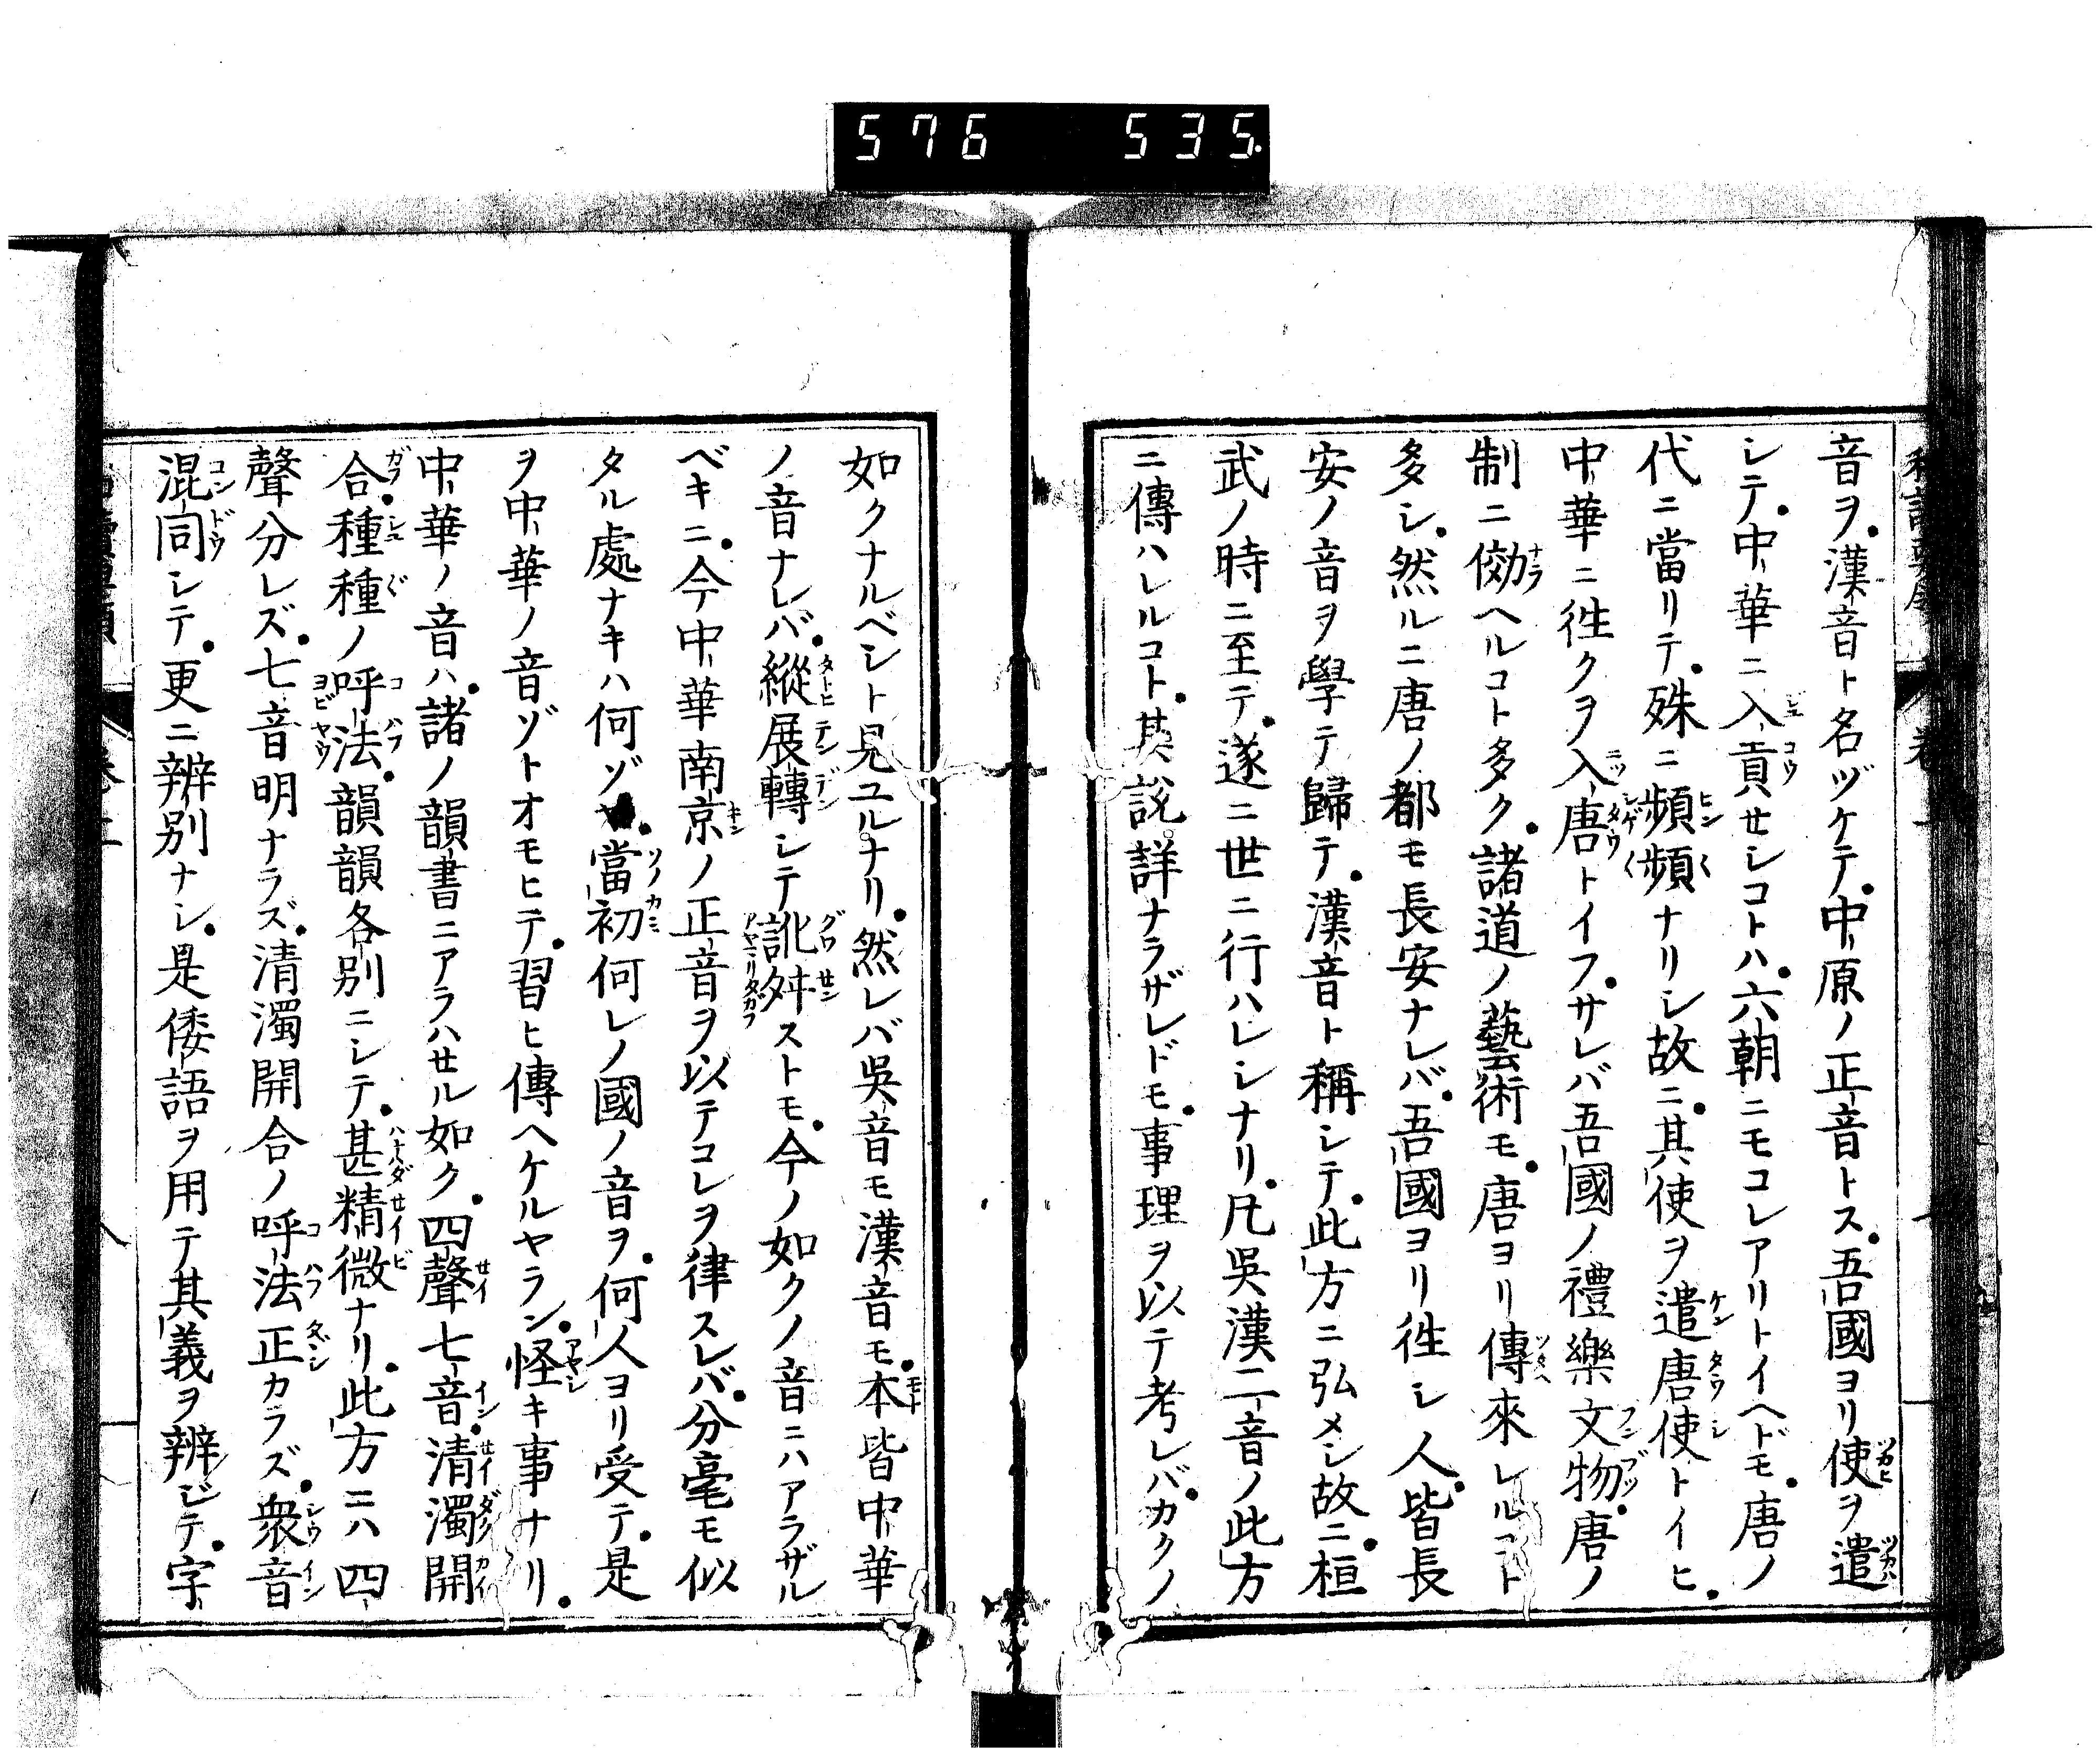 576 535.
音ヲ。漢音ト名ヅケテ。中原ノ正音トス。吾國ヨリ使ヲ遣
シテ。中華ニ入貢セシコトハ。六朝ニモコレアリトイヘドモ。唐ノ
代ニ當リテ。殊ニ頻頻ナリシ故ニ。其使ヲ遣唐使トイヒ。
中華ニ徃クヲ入唐トイフ。サレバ吾國ノ禮樂文物。唐ノ
制ニ傚ヘルコト多ク。諸道ノ藝術モ。唐ヨリ傳來レルコト
多シ。然ルニ唐ノ都モ長安ナレバ。吾國ヨリ徃シ人。皆長
安ノ音ヲ學テ歸テ。漢音ト稱シテ。此方ニ弘メシ故ニ。桓
武ノ時ニ至テ。遂ニ世ニ行ハレシナリ。凡吳漢二音ノ此方
ニ傳ハレルコト。其說詳ナラザレドモ。事理ヲ以テ考レバ。カクノ
如クナルベシト見ユルナリ。然レバ吳音モ漢音モ。本皆中華
ノ音ナレバ。縱展轉シテ訛舛ストモ。今ノ如クノ音ニハアラザル
ベキニ。今中華南京ノ正音ヲ以テコレヲ律スレバ。分毫モ似
タル處ナキハ何ゾヤ。當初何レノ國ノ音ヲ。何人ヨリ受テ。是
ヲ中華ノ音ゾトオモヒテ。習ヒ傳ヘケルヤラン。怪キ事ナリ。
中華ノ音ハ。諸ノ韻書ニアラハセル如ク。四聲七音。清濁開
合。種種ノ呼法。韻韻各別ニシテ。甚精微ナリ。此方ニハ四
聲分レズ。七音明ナラズ。清濁開合ノ呼法正カラズ。衆音
混同シテ。更ニ辨別ナシ。是倭語ヲ用テ其義ヲ辨ジテ。字